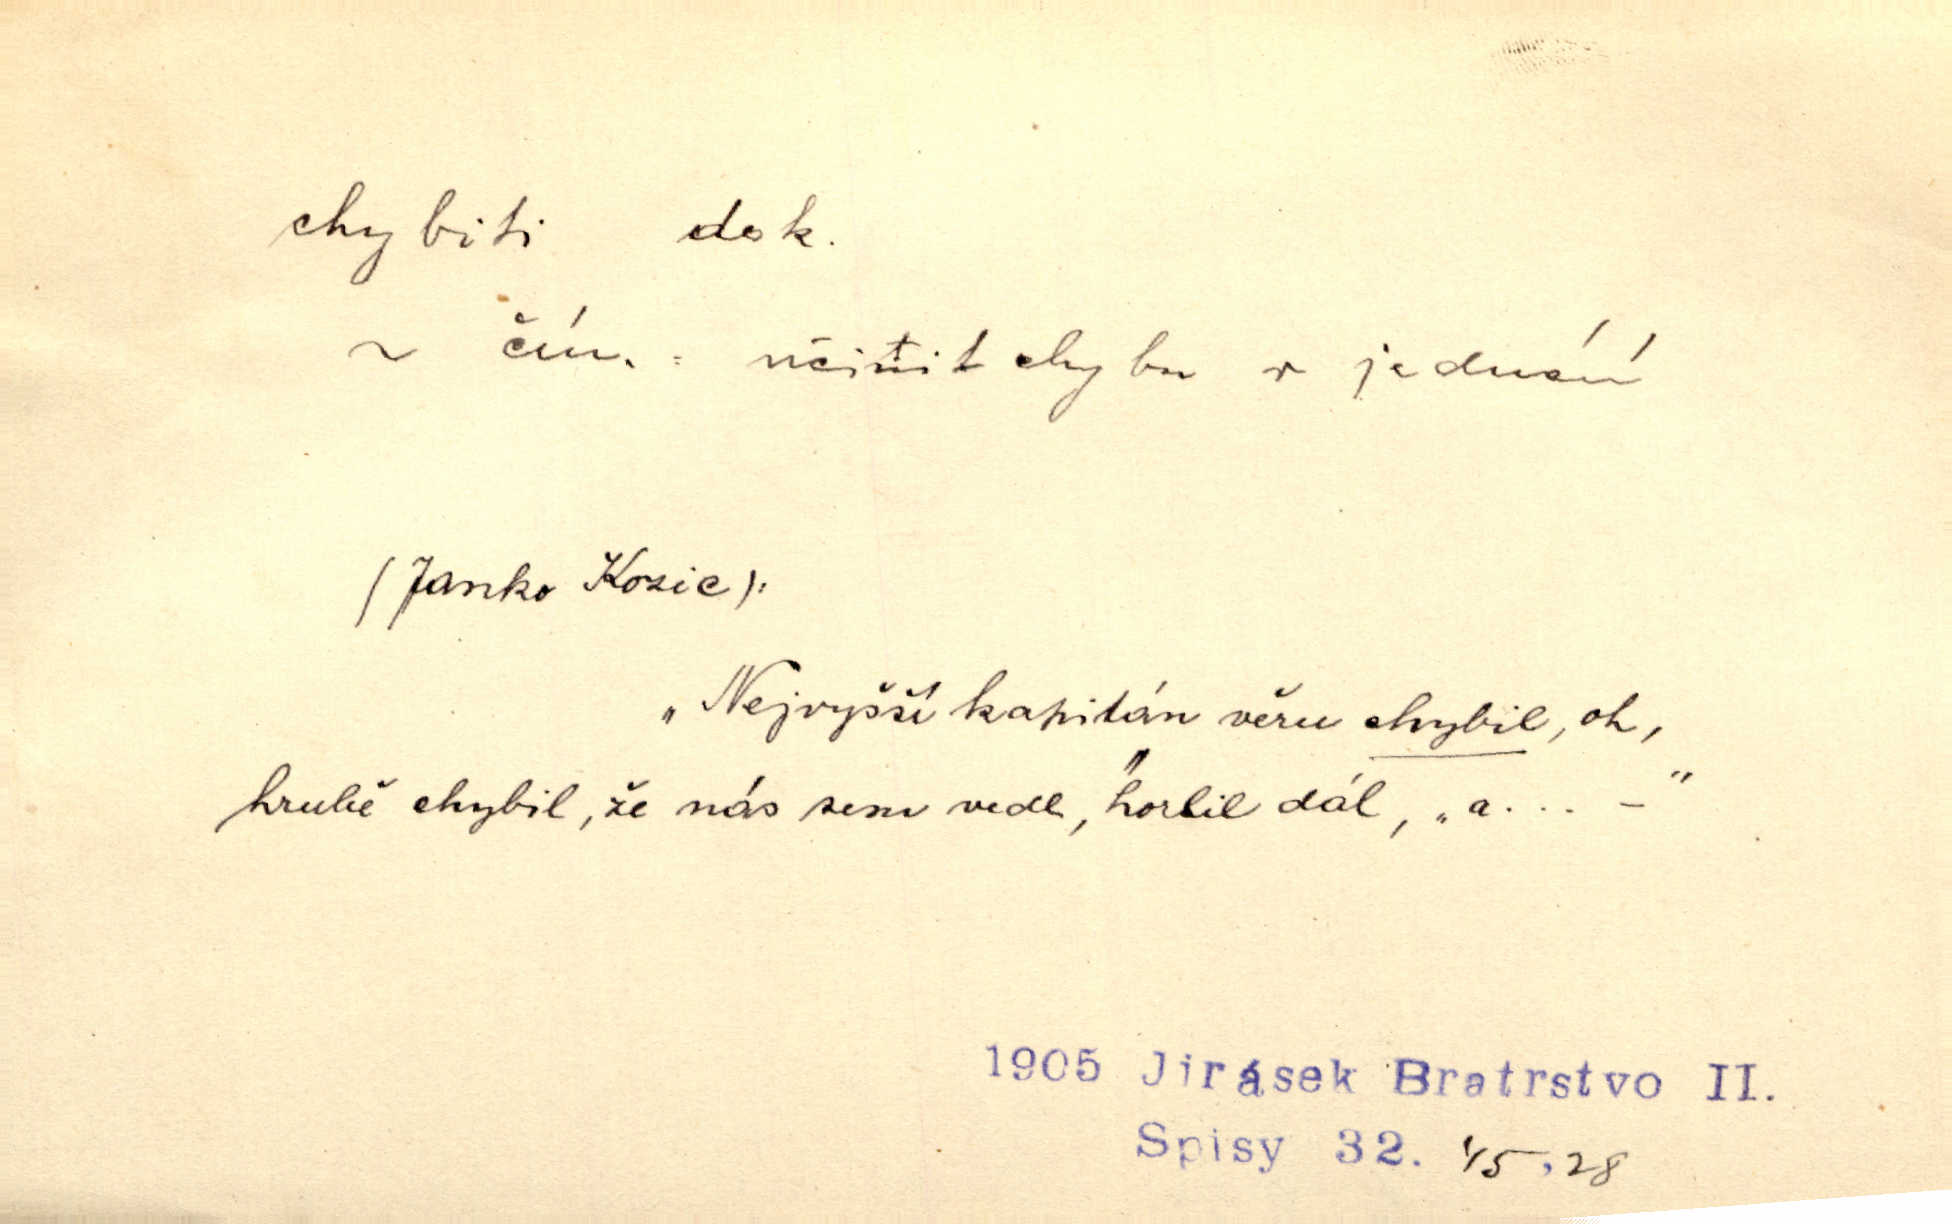 chybiti dok.
~ čin. : učinit chybu v jednání
(Janko Kozic):
„Nejvyšší kapitán věru chybil, oh,
hrubě chybil, že nás sem vedl," horlil dál, „a... –"
1905 Jirásek Bratrstvo II.
Spisy 32. 45,28